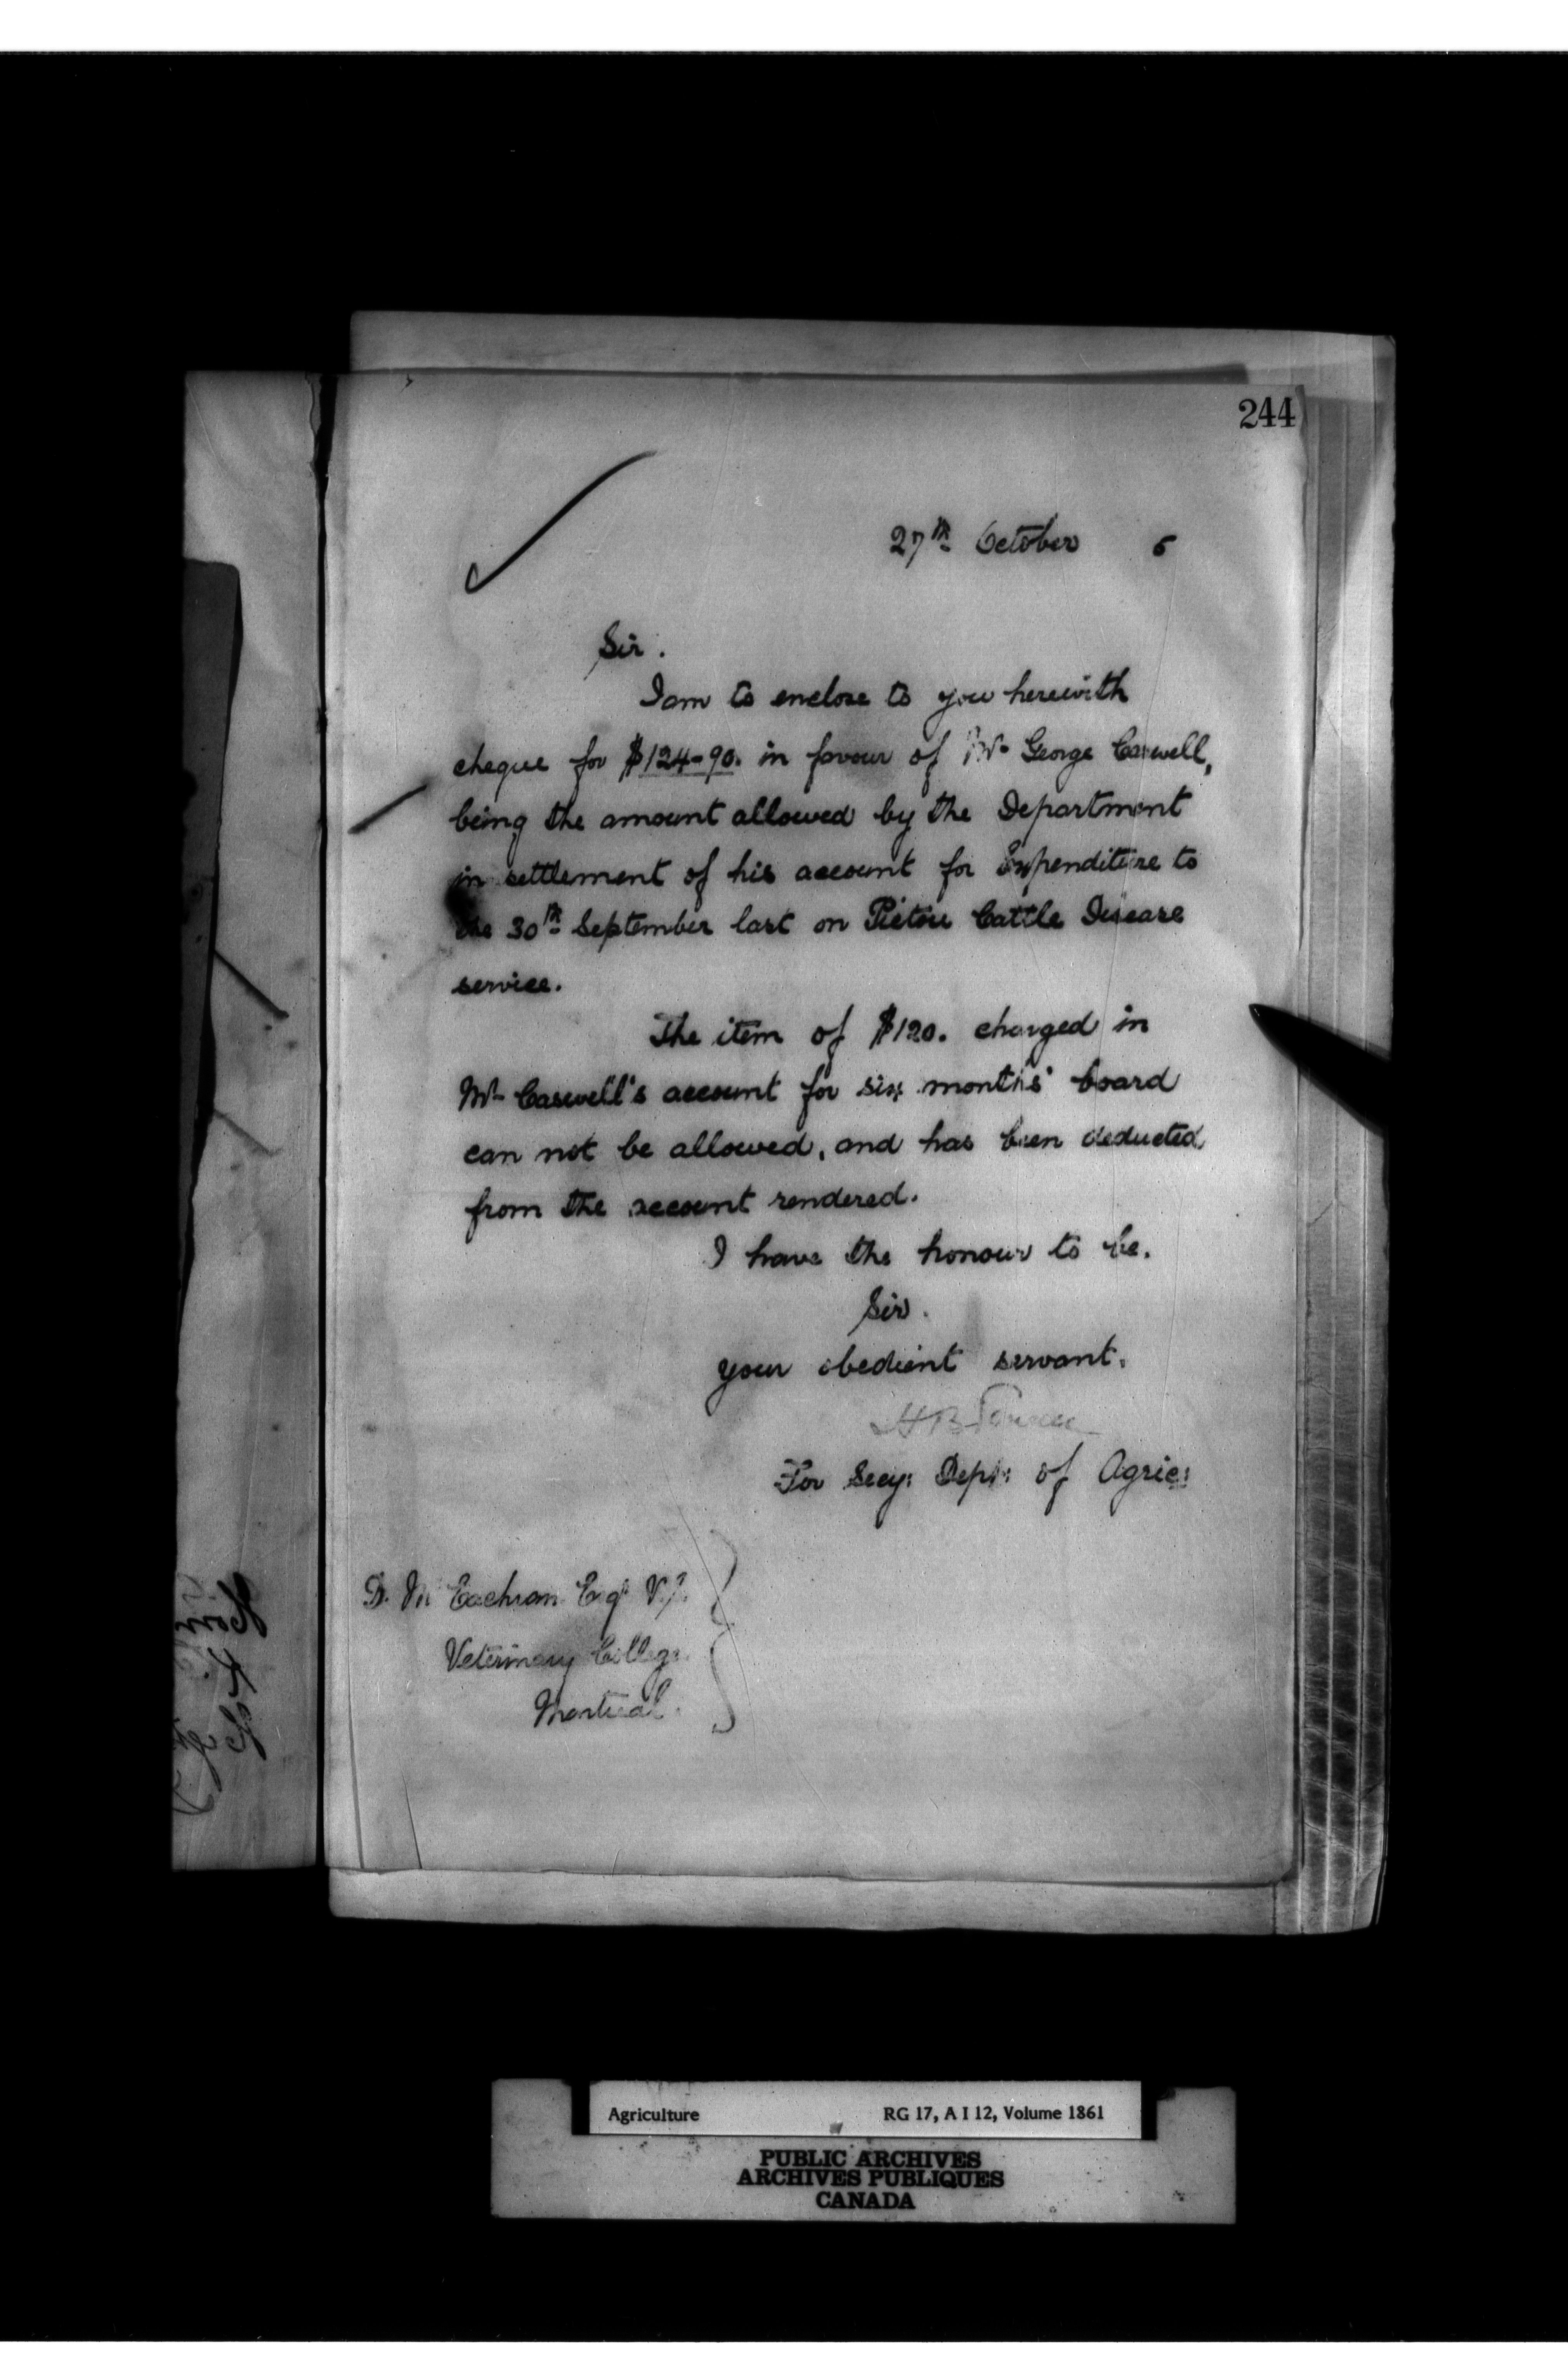 244
27th October 6
Sir.
I am to enclose to you herewith
cheque for $124-90. in favour of Mr George Caswell,
being the amount allowed by the Department
in settlement of his account for Expenditure to
the 30th September last on Pictou Cattle Disease
service.
The item of $120. charged in
Mr Caswell's account for six months' board
can not be allowed, and has been deducted
from the account rendered.
I have the honour to be.
Sir.
your obedient servant.
H B
For Secy: Dept: of Agric:
D. Mc Eachran Esqr V.S.
Veterinary College
Montreal.
Agriculture RG 17, A I 12, Volume 1861
PUBLIC ARCHIVES
ARCHIVES PUBLIQUES
CANADA